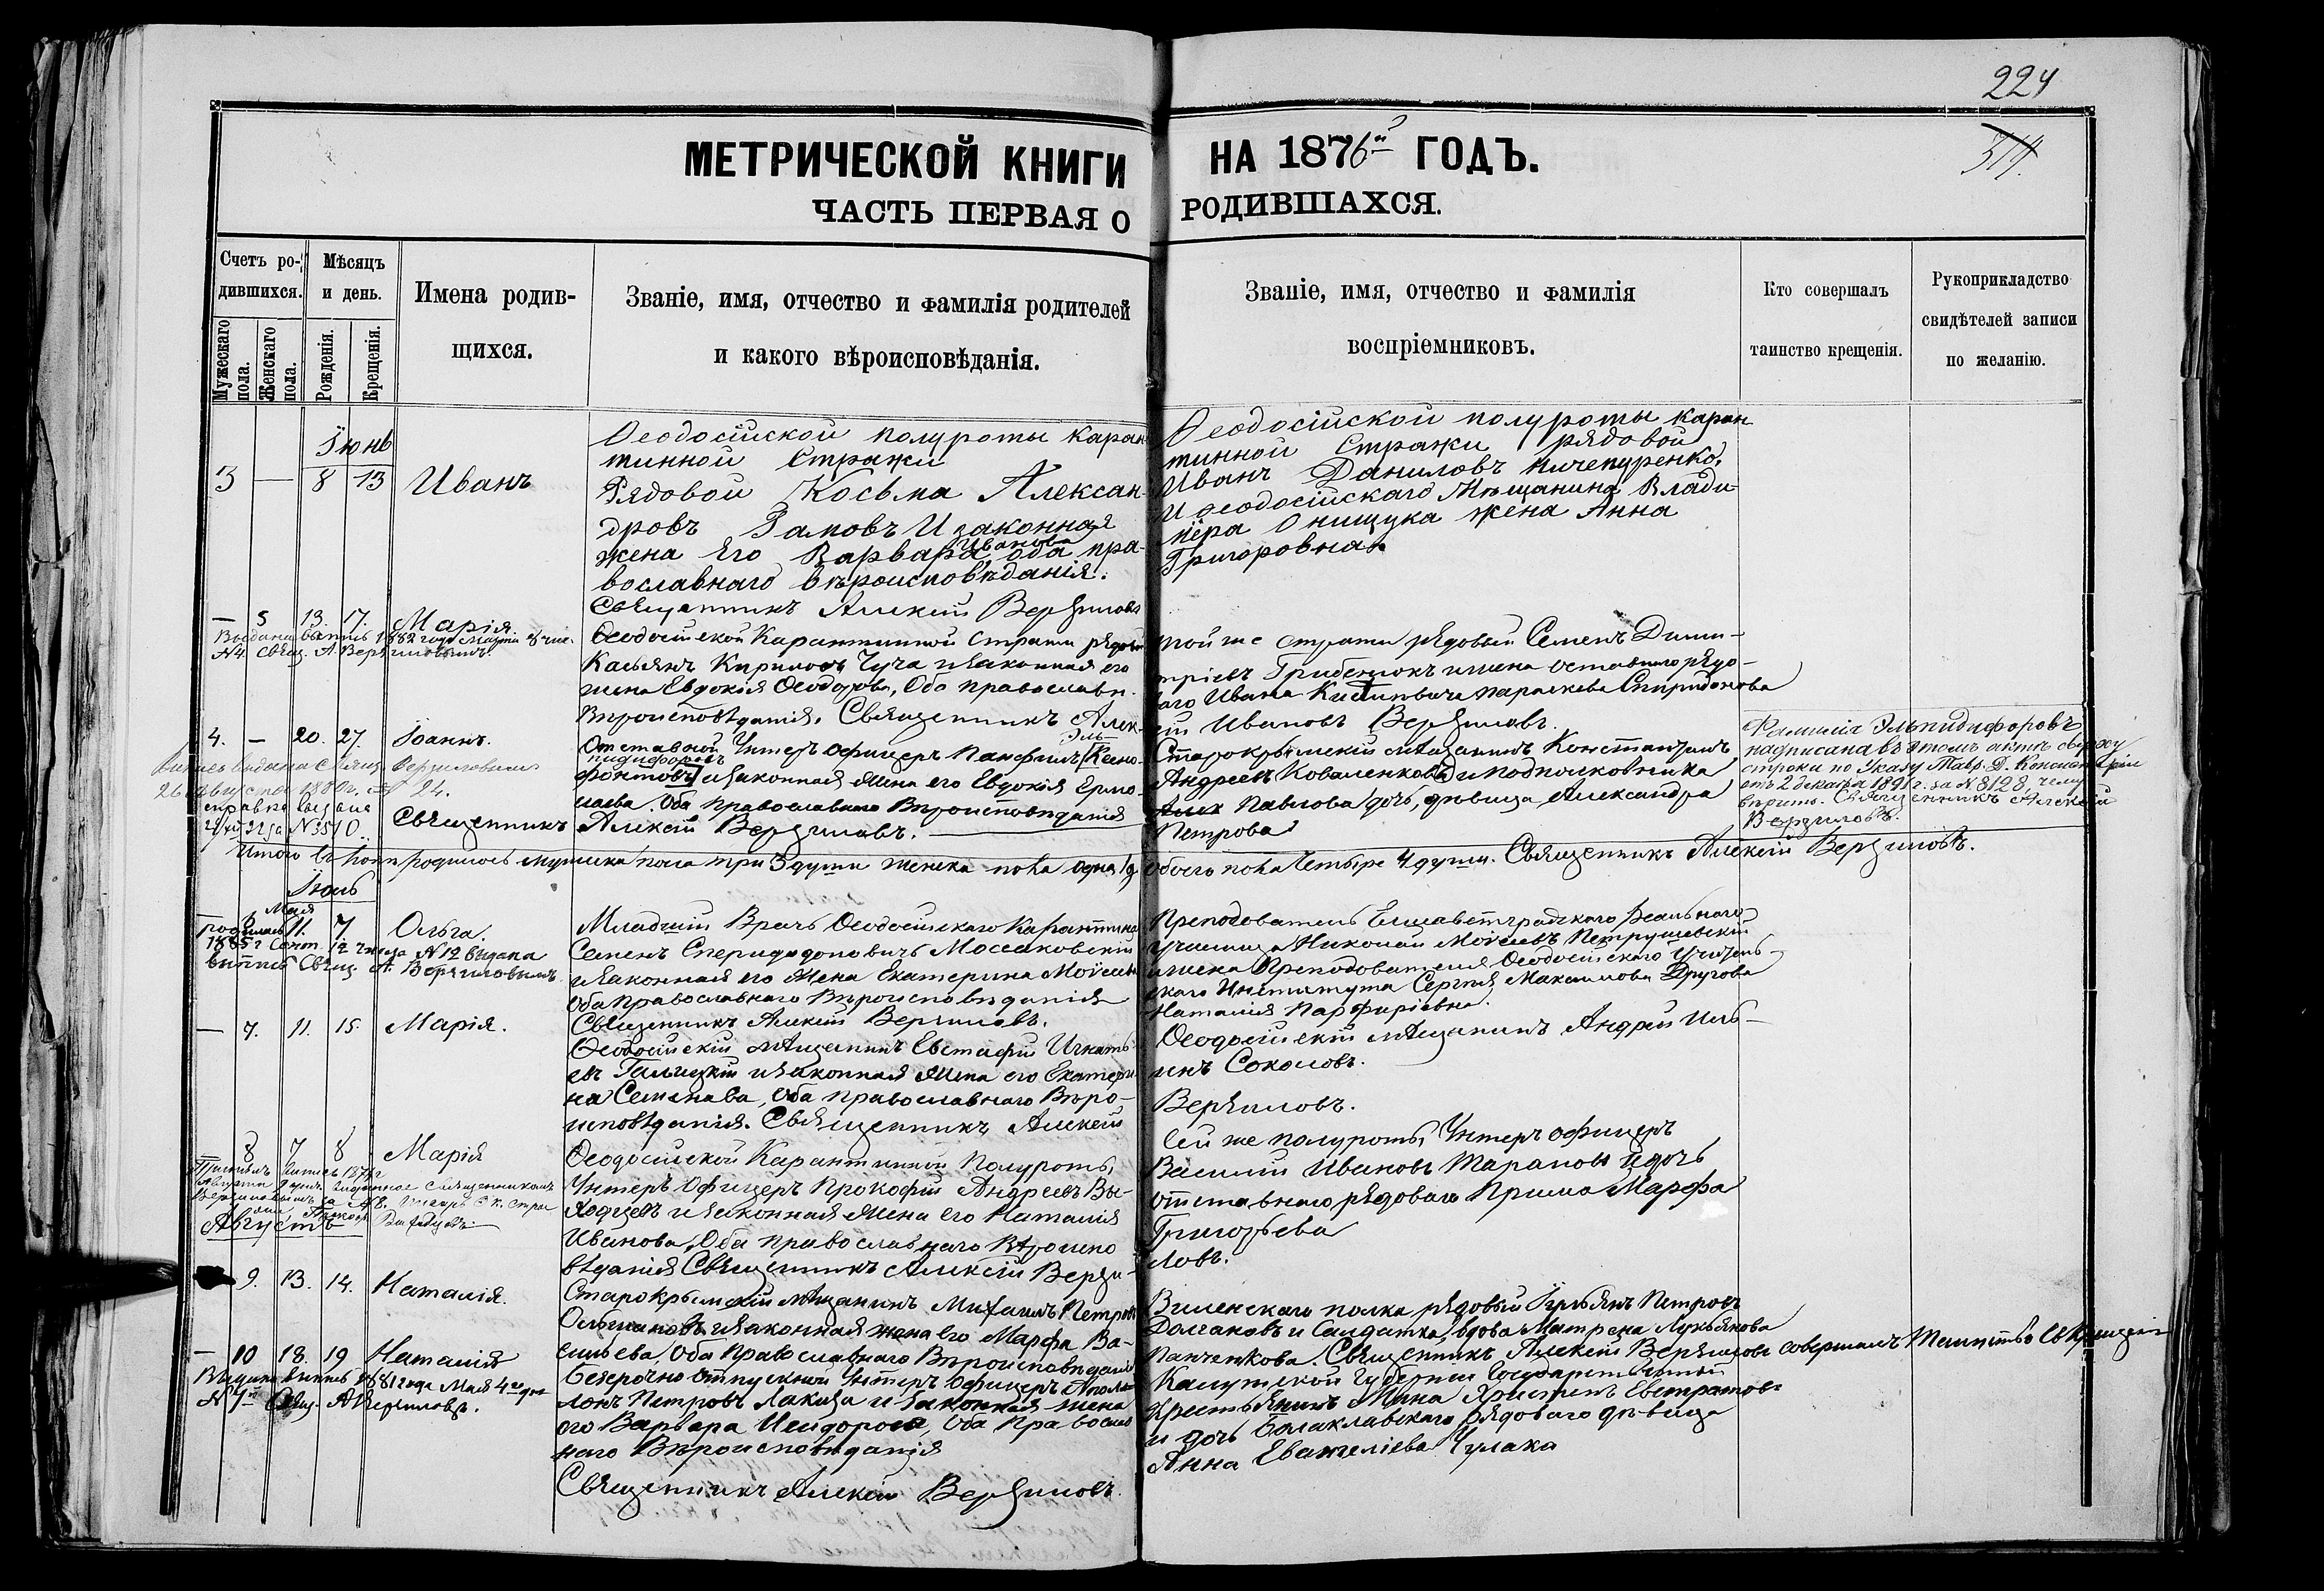 224
314.
МЕТРИЧЕСКОЙ КНИГИ НА 1876й ГОДЪ.
ЧАСТЬ ПЕРВАЯ О РОДИВШАХСЯ.
Счетъ ро-
дившихся.
Мужескаго пола.
Женскаго пола.
Мѣсяцъ
и день.
Рожденія.
Крещенія.
Имена родив-
щихся.
Званіе, имя, отчество и фамилія родителей
и какого вѣроисповѣданія.
Званіе, имя, отчество и фамилія
воспріемниковъ.
Кто совершалъ
таинство крещенія.
Рукоприкладство
свидѣтелей записи
по желанію.
Іюнь
3 — 8 13 Иванъ
Ѳеодосійской полуроты каран
тинной Стражи
Рядовой Косьма Алексан-
дровъ Замовъ И законная
жена Его Варвара Иванова оба пра-
вославнаго вѣроисповѣданія.
Священникъ Алексій Верзиловъ
Ѳеодосійской полуроты каран
тинной Стражи рядовой
Иванъ Даниловъ Ничепуренко,
И ѳеодосійскаго Мѣщанина Влади-
міра Онищука жена Анна
Григоровна
— 5 13. 17. Марія
Выдана выпись 1882 года Марта 8 чис.
№4. Свящ. А. Верзиловымъ.
Ѳеодосійской Карантинной Стражи рядовой
Касьянъ Кириловъ Чуча и законная его
жена Евдокія Ѳеодорова, Оба православн.
Вѣроисповѣданія. Священникъ Алек-
той же стражи рядовый Семенъ Дими-
тріевъ Грибенюкъ и жена оставнаго рядо-
ваго Ивана Параскева Спиридонова
сій Ивановъ Верзиловъ.
4. — 20. 27. Іоаннъ.
Выпись выдана Свящ. Верзиловымъ
26 Августа 1880г. № 24.
справка выдана
за №3510.
Отставной Унтеръ офицеръ Панфилъ Ксено-
Эль-
пидифоровъ
фонтовъ и законная жена его Евдокія Ермо-
лаева. Оба православнаго Вѣроисповѣданія
Священникъ Алексій Верзиловъ.
Старокрымскій мѣщанинъ Константинъ
Андреевъ Коваленковъ и подполковника
Павлова дочь, дѣвица Александра
Петрова
Фамилія Эльпидифоровъ
надписана въ этомъ актѣ сверху
строки по Указу Тавр. Д. Консисторіи
отъ 2 декабря 1891г. за №8128, чему
вѣрить. Священникъ Алексій
Верзиловъ.
Итого въ Іюнѣ родилось мужеска пола три 3 души женска пола одна 1 д.
обоего пола Четыре 4 души. Священникъ Алексій Верзиловъ.
Іюль
— 6 Мая 11. 7. Ольга.
родилась
1885г Сент. 12 числа №12 выдана
выпись Свящ. А. Верзиловымъ.
Младшій Врачъ Ѳеодосійскаго Карантина
Семенъ Спиридоновичъ Моссаковскій
и законная его жена Екатерина Моѵсеева
оба православнаго Вѣроисповѣданія
Священникъ Алексій Верзиловъ.
Преподователь Елисаветградскаго Реальнаго
Училища Николай Моѵсеевъ Петрушевскій
и жена Преподователя Ѳеодосійскаго Учитель-
скаго Института Сергія Максимова Другова
Наталія Парфиріевна.
— 7. 11. 15. Марія.
Ѳеодосійскій мѣщанинъ Евстафій Игнать-
евъ Галицкій и законная жена его Екатери-
на Семенова, Оба православнаго Вѣро-
исповѣданія. Священникъ Алексій
Ѳеодосійскій мѣщанинъ Андрей Иль-
инъ Соколовъ.
Верзиловъ.
— 8 7 8 Марія
Ѳеодосійской Карантинной Полуроты,
Унтеръ Офицеръ Прокофій Андреевъ Вы-
ходцевъ и законная жена его Наталія
Иванова, Оба православнаго Вѣроиспо
вѣданія Священникъ Алексій Верзи-
Сей же полуроты, Унтеръ офицеръ
Василій Ивановъ Тарановъ и дочь
отставнаго рядоваго Прима Марфа
Григорьева
ловъ.
Августъ
9. 13. 14. Наталія.
Старокрымскій мѣщанинъ Михаилъ Петровъ
и законная жена его Марфа Ва-
сильева, Оба Православнаго Вѣроисповѣданія
Виленскаго полка рядовый Петровъ
Долгановъ и Салдатка, вдова Матрена Лукьянова
Панченкова. Священникъ Алексій Верзиловъ совершалъ Таинство Св Крещенія
— 10 18. 19 Наталія
Выдана выпись 1881 года Мая 4го дня
Свящ. А Верзиловъ.
Безсрочно отпускной Унтеръ офицеръ Апол-
лонъ Петровъ Лакиза и законная жена
его Варвара Исидорова, Оба православ
наго Вѣроисповѣданія
Священникъ Алексій Верзиловъ.
Калужской Губерніи Государственный
Крестьянинъ Евстратовъ
и дочь Балаклавскаго рядоваго дѣвица
Анна Евангеліева Чулака